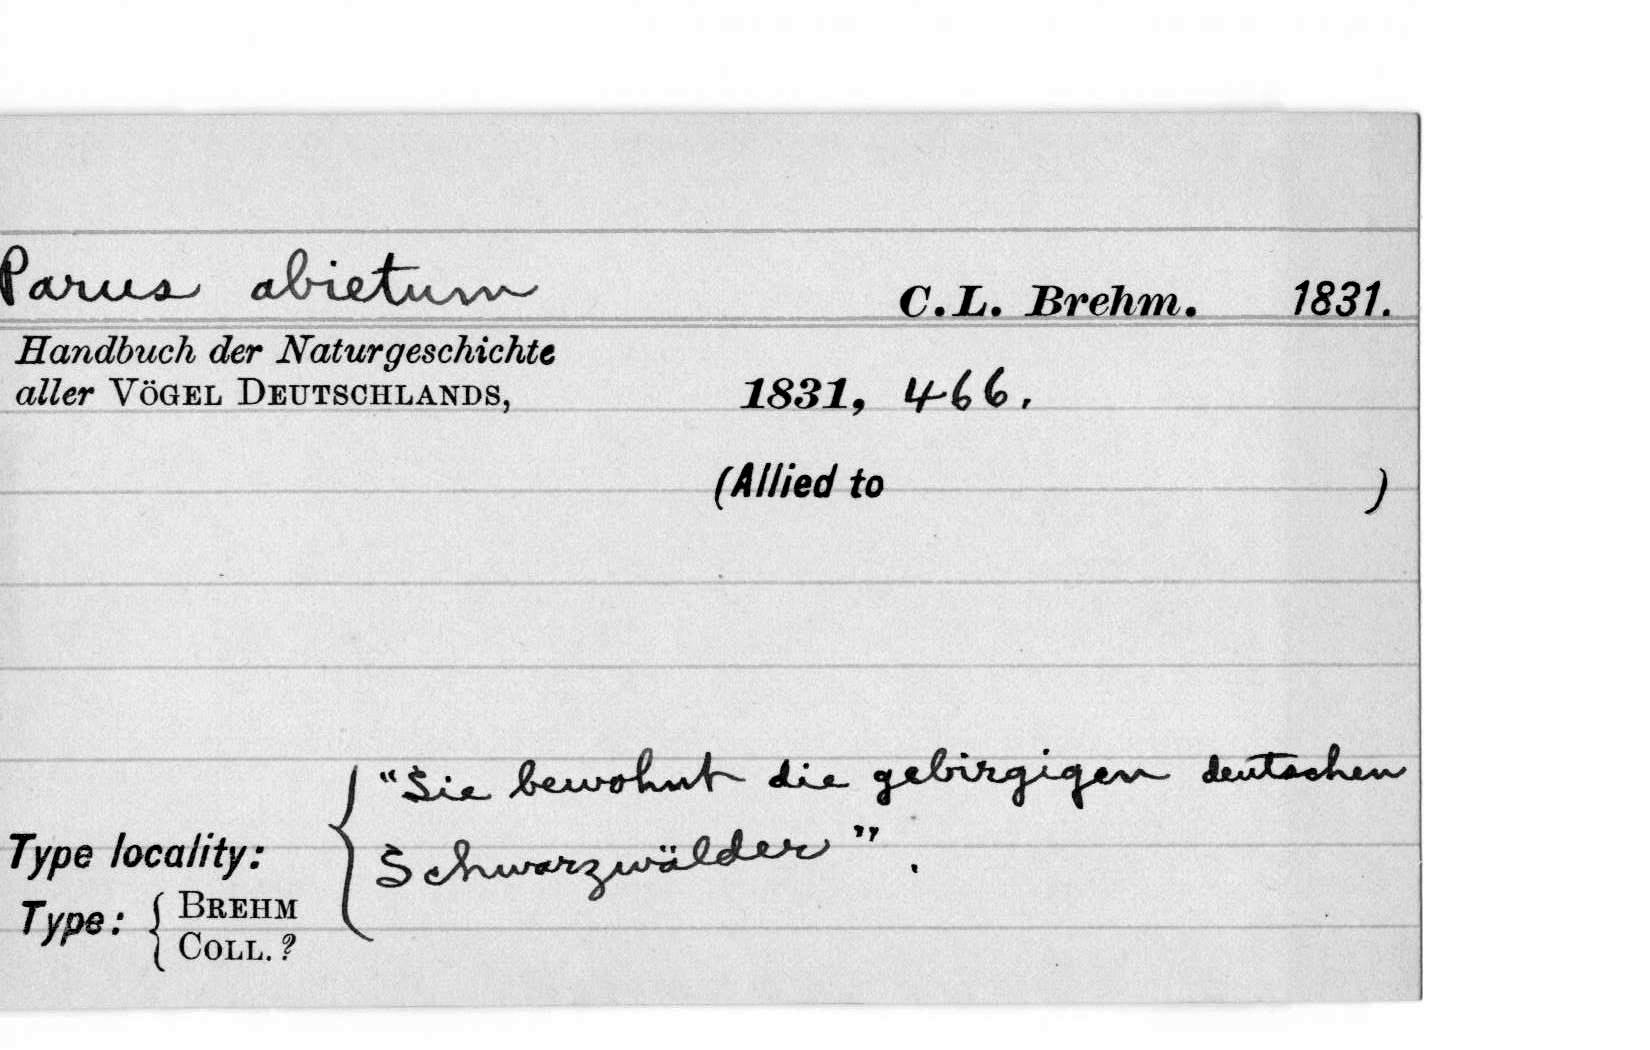 Parus abietum C.L. Brehm. 1831.
Handbuch der Naturgeschichte
aller VÖGEL DEUTSCHLANDS, 1831, 466.
(Allied to )
"Sie bewohnt die gebirgigen deutschen
Type locality: { Schwarzwälder".
Type: { BREHM
COLL. ?